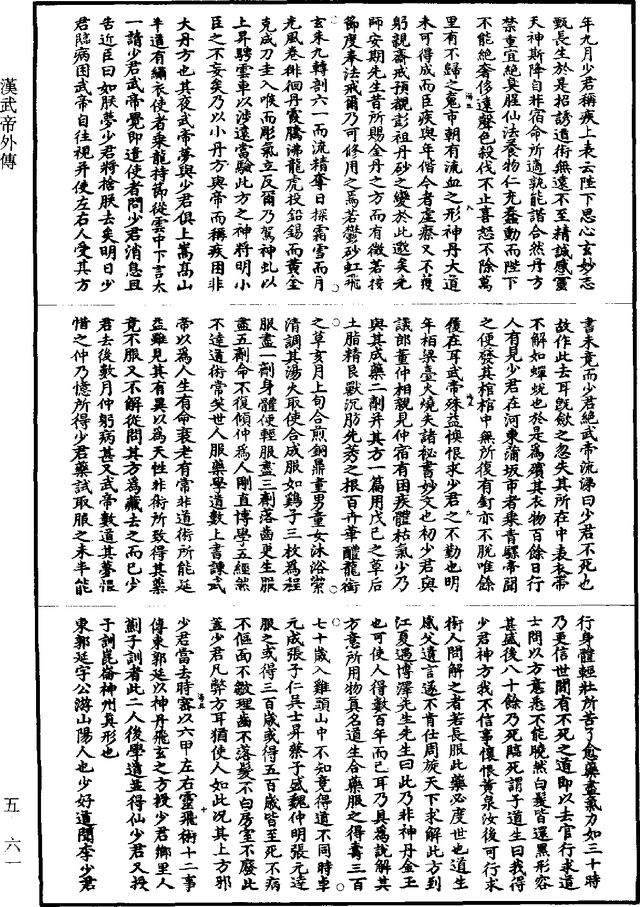 年九月少君稱疾上表云陛下思心玄妙志
甄長生於是招誘道術無遠不至精誠感靈
天神斯降自非宿命所適孰能諧合然丹方
禁重宜絕臭腥仙法養物仁充蠢動而陛下
不能絕奢侈遠聲色殺伐不止喜怒不除萬
里有不歸之鬼市朝有流血之形神丹大道
未可得成而臣疾與年偕今者虛瘵又不獲
躬親齋戒預覩彭祖丹砂之變於此邀矣先
師安期先生昔所賜金丹之方而有徵若接
節度奉法戒爾乃可修用之焉若鬱砂虹飛
玄朱九轉剖六一而流精奪日探霜雪而月
光風卷徘徊丹霞騰沸龍虎投鉛錫而黃金
克成刀圭入喉而彫氣立反爾乃駕神虬以
上昇騁雲車以涉遠當驗此方之神將明小
臣之不妄矣乃以小丹方與帝而稱疾固非
大丹方也其夜武帝夢與少君俱上嵩高山
半道有繡衣使者乘龍持節從雲中下言太
一請少君武帝覺即遣使者問少君消息且
告近臣曰如朕夢少君將捨朕去矣明日少
君臨病困武帝自往視并使左右人受其方
書未竟而少君絕武帝流涕曰少君不死也
故作此去耳既斂之忽失其所在中表衣帶
不解如蟬蛻也於是為殯其衣物百餘日行
人有見少君在河東蒲坂市者乘青騾帝聞
之便發其棺棺中無所復有釘亦不脫唯餘
履在耳武帝殊益懊恨求少君之不勤也明
年栢梁臺火燒失諸秘書妙文也初少君與
議郎董仲相親見仲宿有固疾體枯氣少乃
與其成藥二劑并其方一篇用戊己之草后
土脂精艮獸沉肪先莠之根百卉華醴龍銜
之草亥月上旬合煎銅鼎童男童女沐浴潔
清調其湯火取使合成服如鷄子三枚為程
服盡一劑身體便輕服盡三劑落齒更生服
盡五劑命不復傾仲為人剛直博學五經然
不達道術常笑世人服藥學道數上書諫武
帝以為人生有命衰老有常非道術所能延
益雖見其有異以為天性非術所致得其藥
竟不服又不解從問其方為藏去之而已少
君去後數月仲躬病甚又武帝數道其夢恨
惜之仲乃憶所得少君藥試取服之未半能
行身體輕壯所苦了愈藥盡氣力如三十時
乃更信世間有不死之道即以去官行求道
士問以方意悉不能曉然白髮皆還黑形容
甚盛後八十餘乃死臨死謂子道生曰我得
少君神方我不信事懷恨黃泉汝後可行求
術人問解之者若長服此藥必度世也道生
感父遺言遂不肯仕周旋天下求解此方到
江夏遇博澤先生先生曰此乃非神丹金玉
也可使人得數百年而已耳乃具為說解其
方意所用物真名道生合藥服之得壽三百
七十歲入雞頭山中不知竟得道不同時卓
元成張子仁吳士昇蔡子盛魏仲明張元達
服之或得三百歲或得五百歲皆至死不病
不傴面不皺理齒不落髮不白房室不廢此
蓋少君凡弊方耳猶使人如此況其上方邪
少君當去時密以六甲左右靈飛術十二事
傳東郭延以神丹飛玄之方授少君鄉里人
薊子訓者此二人後學道並得仙少君又授
子訓崑崙神州真形也
東郭延字公游山陽人也少好道聞李少君
漢武帝外傳
五
六一